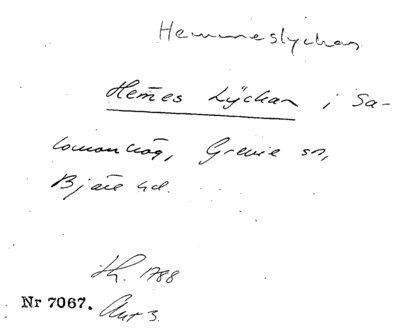 Hemmeslyckan
Hem̄es Lÿckan i Sa-
lomonhög, Grevie sn,
Bjäre hd.
Th. 1788
Nr 7067. Akt 3.